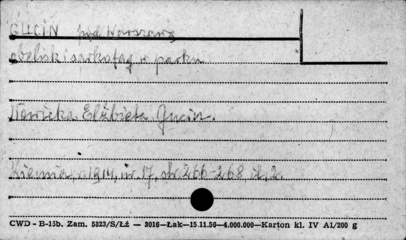 GUCIN pod Warszawą
obelisk i sarkofag w parku
Elżbieta Gucin.
Ziemia, 1914, nr. 17, str. 266-268, il. 2.
CWD - B-15b. Zam. 5823/S/Łź — 3016—Łak—15.11.56—4.000.000—Karton kl. IV A1/200 g